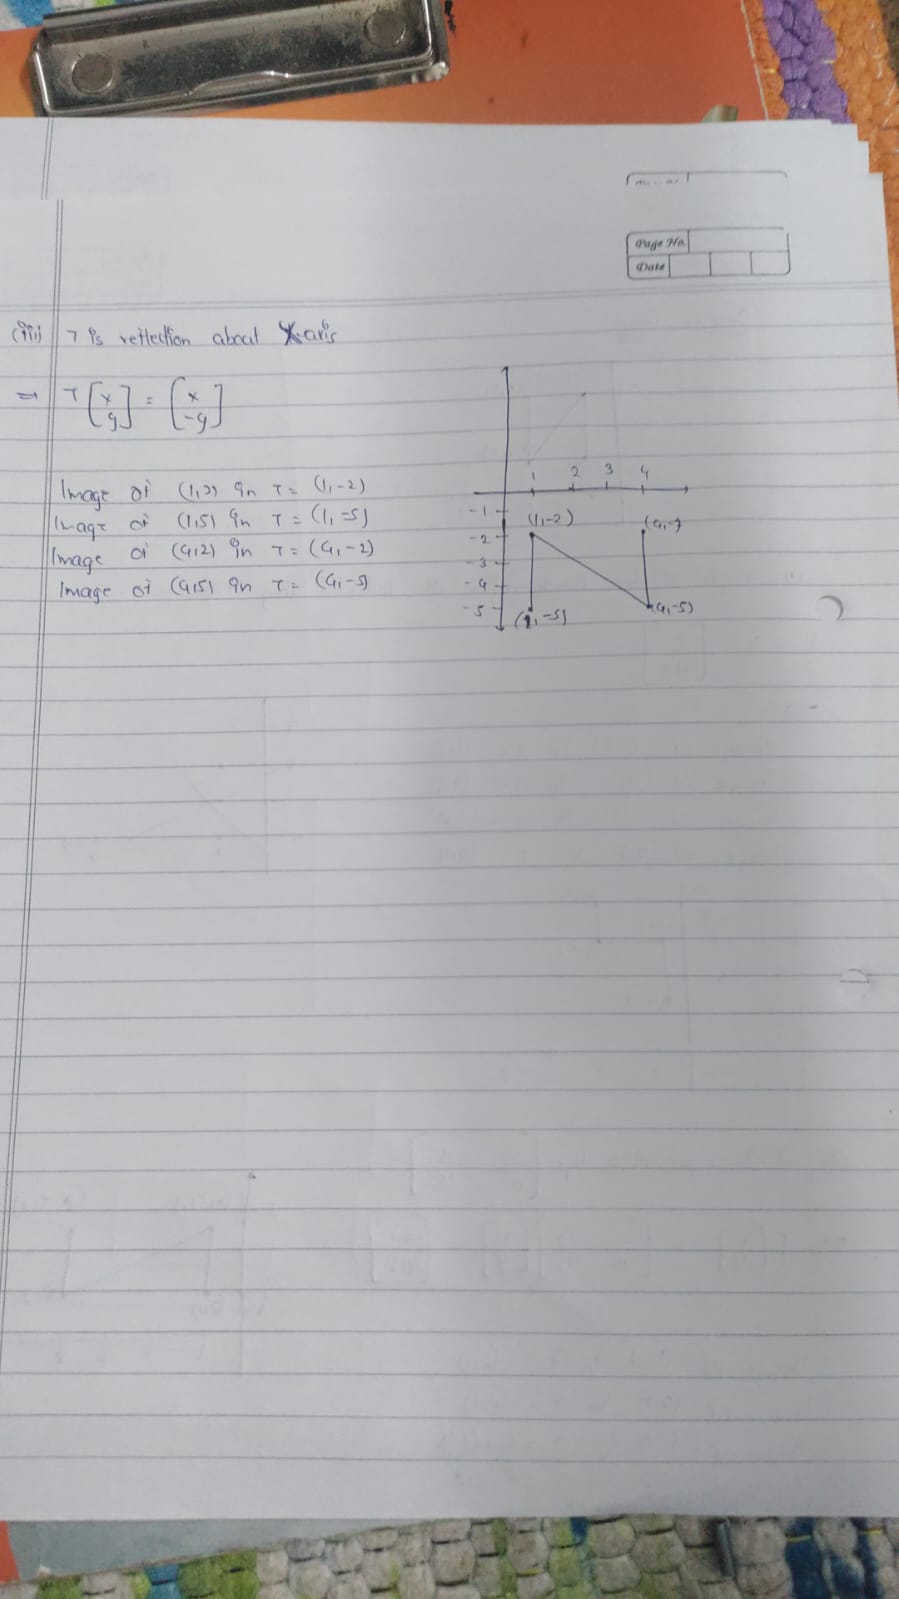 Page No.
Date
(iii) T is reflection about X-axis
⇒ T [x y] = [x -y]
Image of (1,2) in T = (1,-2)
Image of (1,5) in T = (1,-5)
Image of (4,2) in T = (4,-2)
Image of (4,5) in T = (4,-5)
1 2 3 4
-1
(1,-2)
-2
-3
-4
-5 (1,-5) (4,-5)